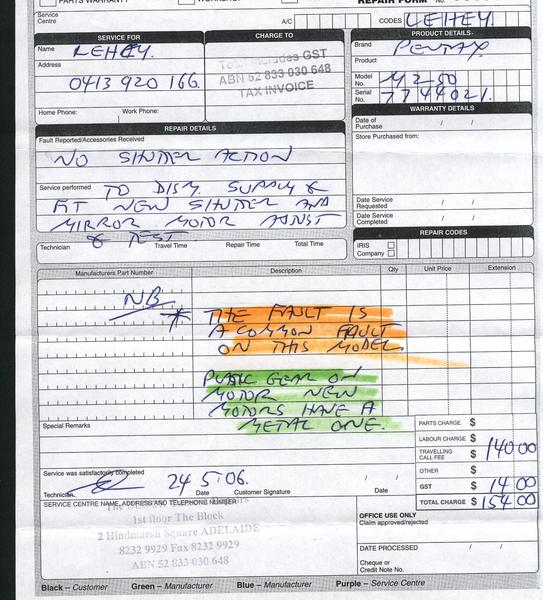 PARTS WARRANTY
WORKSHOP
REPAIR FORM No.
Service Centre
A/C
CODES LEHEY.
SERVICE FOR
CHARGE TO
PRODUCT DETAILS
Name LEHEY.
Total includes GST
ABN 52 833 030 648
TAX INVOICE
Brand PENTAX.
Address
Product
0413 920 166.
Model No. MZ-50
Serial No. 7744021.
Home Phone:
Work Phone:
WARRANTY DETAILS
REPAIR DETAILS
Date of Purchase / /
Fault Reported/Accessories Received
Store Purchased from:
NO SHUTTER ACTION
Service performed TO DISM. SUPPLY &
FIT NEW SHUTTER AND
MIRROR MOTOR ADJUST
& TEST
Date Service Requested / /
Date Service Completed / /
Technician
Travel Time
Repair Time
Total Time
REPAIR CODES
IRIS
Company
Manufacturers Part Number
Description
Qty
Unit Price
Extension
NB
* THE FAULT IS
A COMMON FAULT
ON THIS MODEL.
PLASTIC GEAR ON
MOTOR NEW
MOTORS HAVE A
METAL ONE.
Special Remarks
PARTS CHARGE $
LABOUR CHARGE $
TRAVELLING CALL FEE $ 140.00
OTHER $
GST $ 14.00
TOTAL CHARGE $ 154.00
Service was satisfactorily completed
24.5.06.
Technician
Date
Customer Signature
/ / Date
SERVICE CENTRE NAME, ADDRESS AND TELEPHONE NUMBER
1st floor The Block
2 Hindmarsh Square ADELAIDE
8232 9929 Fax 8232 9929
ABN 52 833 030 648
OFFICE USE ONLY
Claim approved/rejected
DATE PROCESSED / /
Cheque or
Credit Note No.
Black – Customer
Green – Manufacturer
Blue – Manufacturer
Purple – Service Centre